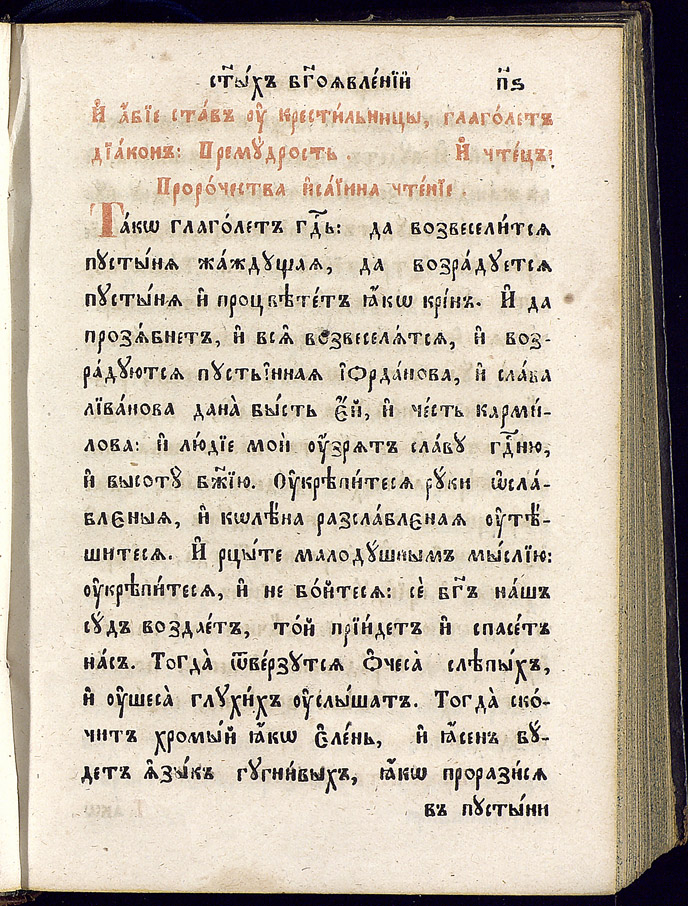 ст҃ы́хъ бг҃оѧвле́нїй п҃ѕ
И҆ а҆́бїе ста́въ ᲂу҆ крести́льницы, глаго́летъ
дїа́конъ: Прему́дрость. И҆ чте́цъ:
Проро́чества и҆са́їина чте́нїе.
Та́кѡ глаго́летъ гдⷭ҇ь: да возвесели́тсѧ
пусты́нѧ жа́ждущаѧ, да возра́дуетсѧ
пусты́нѧ и҆ процвѣте́тъ ꙗ҆́кѡ крі́нъ. И҆ да
прозѧ́бнетъ, и҆ всѧ̑ возвеселѧ́тсѧ, и҆ воз-
ра́дуютсѧ пусты̑ннаѧ і҆ѻрда́нѡва, и҆ сла́ва
лїва́нова дана̀ бы́сть є҆́й, и҆ че́сть карми́-
лова: и҆ лю́дїе мои̑ ᲂу҆́зрѧтъ сла́ву гдⷭ҇ню,
и҆ высоту̀ бж҃їю. Оу҆крѣпи́тесѧ ру́ки ѡ҆сла́-
блєныѧ, и҆ кѡлѣ́на разсла́блєнаѧ ᲂу҆тѣ́-
шитесѧ. И҆ рцы́те малоду́шнымъ мы́слїю:
ᲂу҆крѣпи́тесѧ, и҆ не бо́йтесѧ: сѐ бг҃ъ на́шъ
су́дъ воздае́тъ, то́й прїи́детъ и҆ спасе́тъ
на́съ. Тогда̀ ѿве́рзутсѧ ѻ҆чеса̀ слѣпы́хъ,
и҆ ᲂу҆шеса̀ глухи́хъ ᲂу҆слы́шатъ. Тогда̀ ско́-
читъ хромы́й ꙗ҆́кѡ є҆ле́нь, и҆ ꙗ҆́сенъ бу́-
детъ ѧ҆зы́къ гугни́выхъ, ꙗ҆́кѡ прорази́сѧ
въ пусты́ни